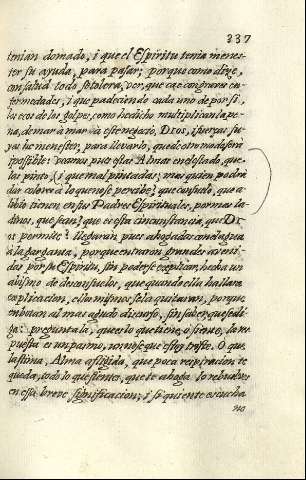 337
tenian domado, i que el Espiritu tenia menes-
ter su ayuda, para pasar; porque como dize,
con salud todo se tolera, ver, que cae con graves en-
fermedades, i que padeciendo cada uno de por si,
los ecos de los golpes, como he dicho multiplican la pe-
na, de mar à mar và este negocio, Dios, i fuerças su-
yas ha menester, para llevarlo, que de otro modo será
imposible: veamos pues esta Alma en el estado, que
las pinto, (i que mal pintadas; mas quien podrà
dar colores à lo que no se percibe? que consuelo, que a-
libio tienen en sus Padres Espirituales, por mas la-
dinos, que sean? que es esta circunstancia, que Di-
os permite? llegaràn pues ahogadas con el agua
à la garganta, porque entraron grandes aveni-
das por su Espiritu, sin poderse explicar, hecha un
abismo de desconsuelos, que quando ella hallara
explicacion, ella misma se la quitaran, porque
embotan al mas agudo discurso, sin saber que se di-
ga: preguntala, que es lo que tiene, ò siente, la res-
puesta es un pasmo, un no se que, estoy triste. O que
lastima, Alma afligida, que poca respiracion te
queda, todo lo que sientes, que te ahoga lo rebuelves
en essa breve significacion; i si quien te escucha
no